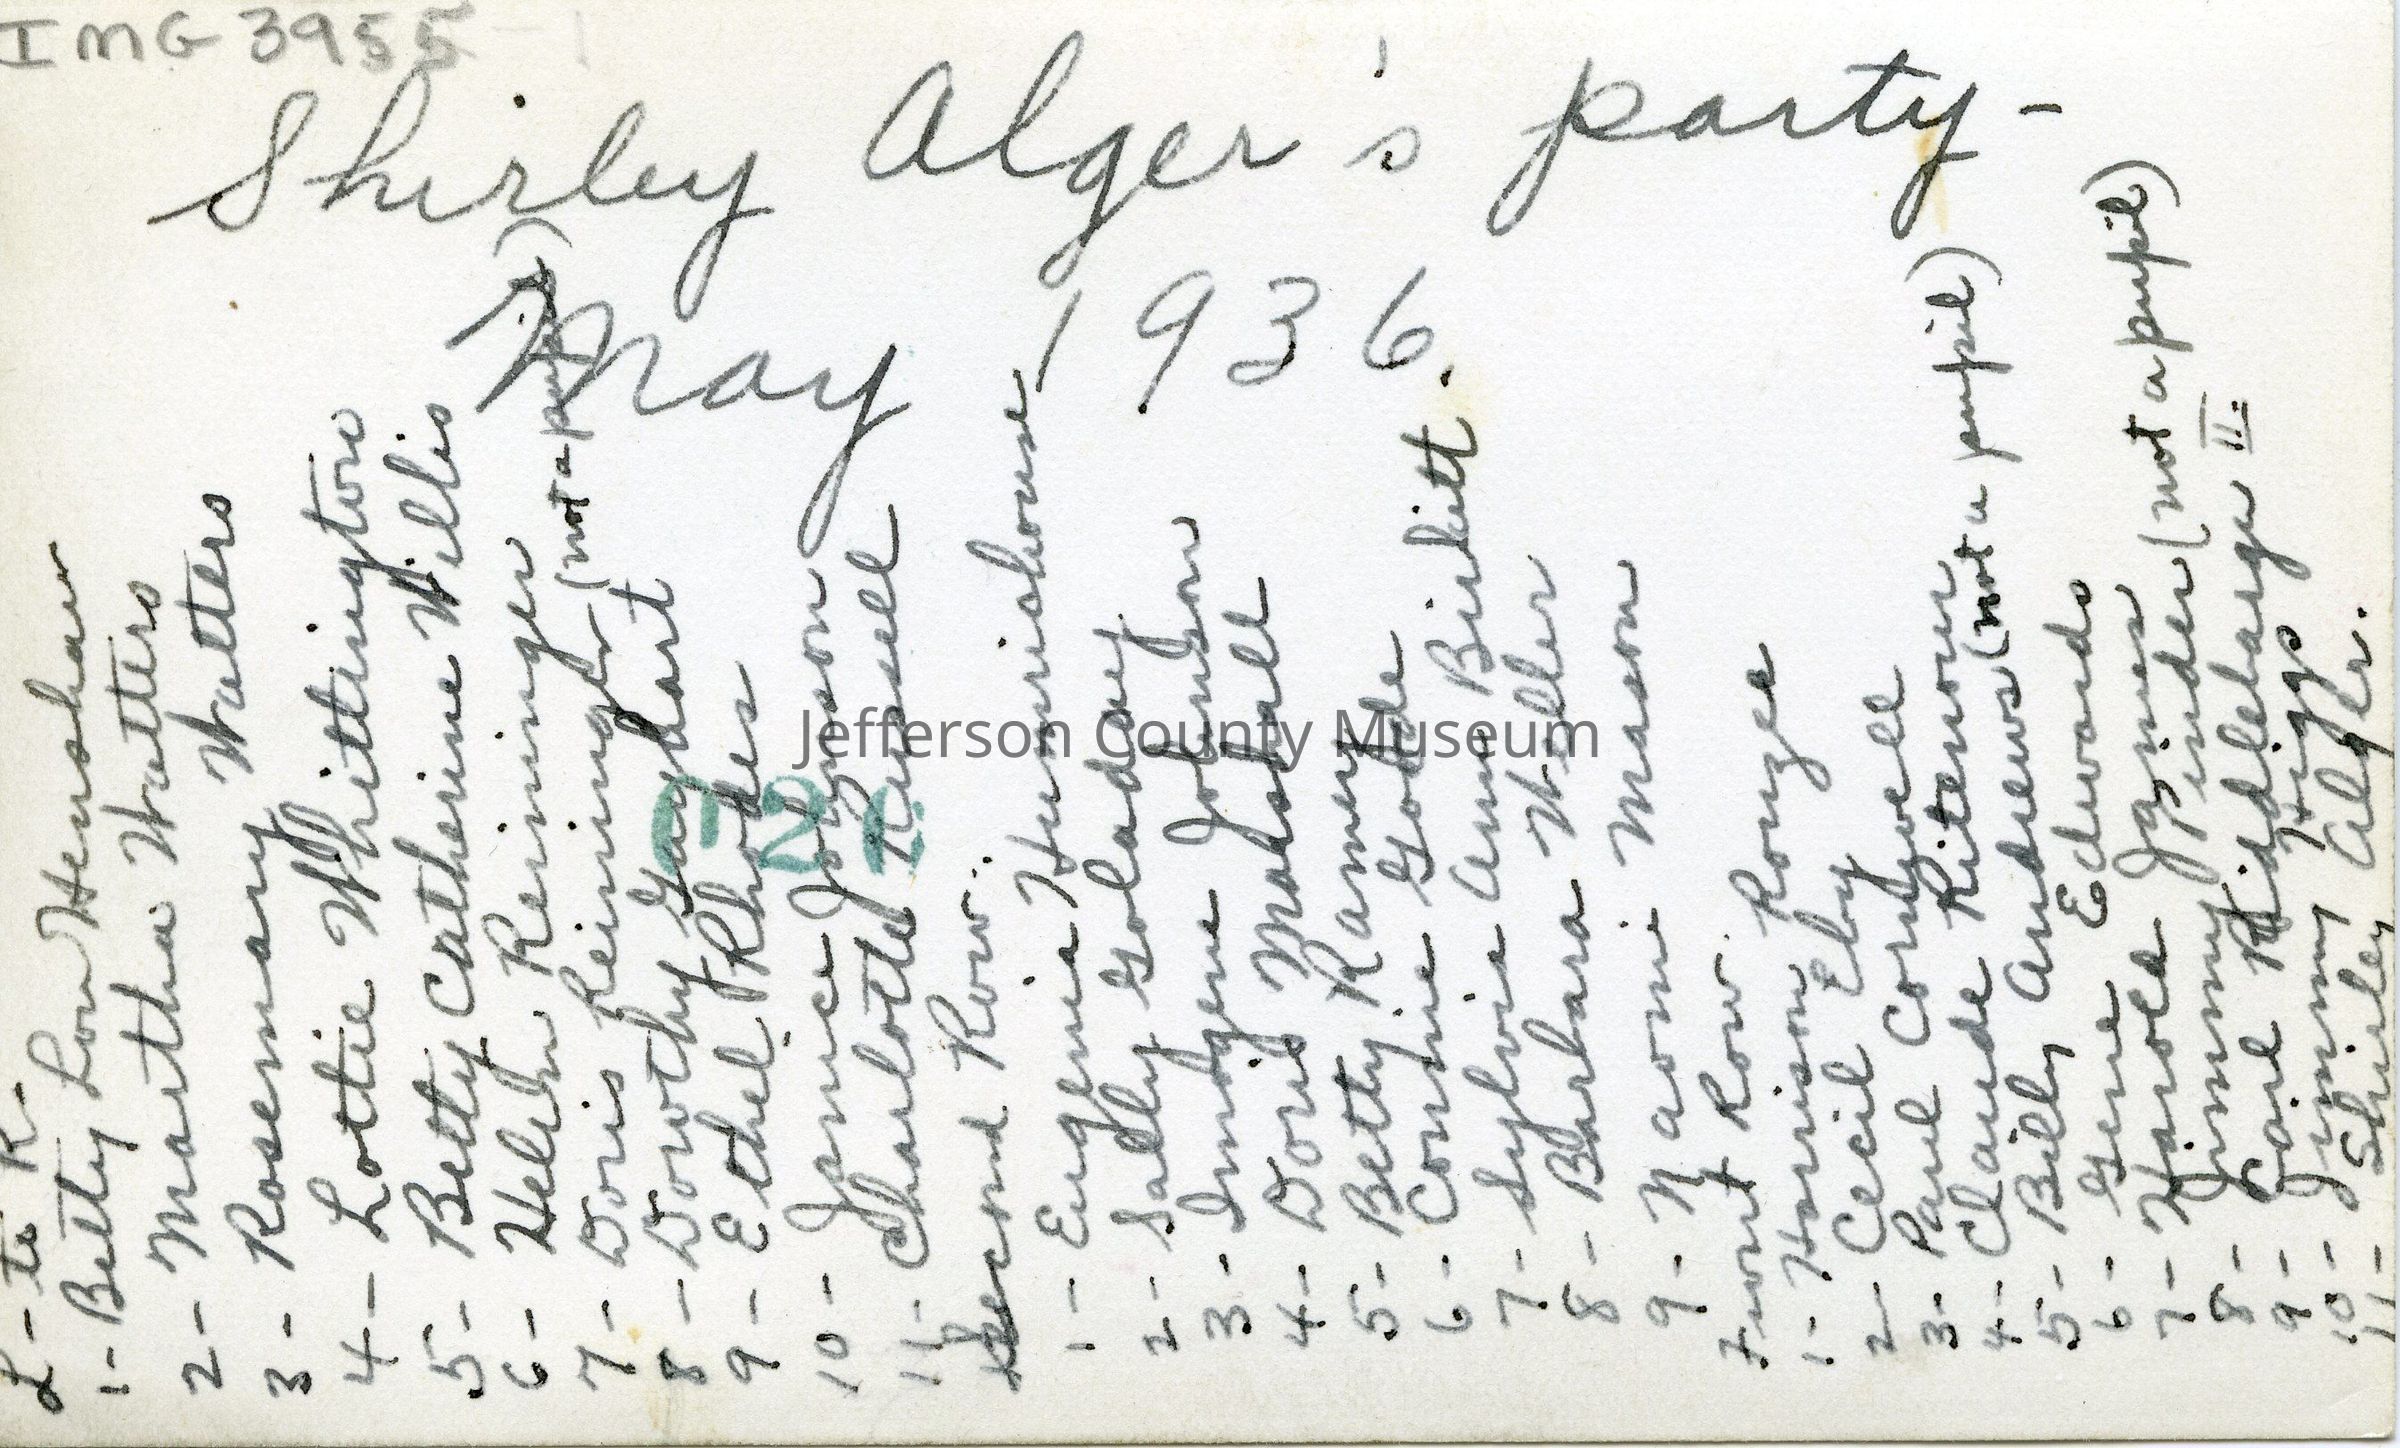 IMG 3955-1
Shirley Alger's party-
May 1936.
L- to R-
1- Betty Lou Henshaw
2- Martha Watters
3- Rosemary Watters
4- Lottie Whittington
5- Betty Catherine Willis
6- Helen Reininger
7- Doris Reininger (not a pupil)
8- Dorothy Gayhart
9- Ethel Rhodes
10- Janice Johnson
11- Charlotte Russell
Second Row.
1- Eugenia Humrichouse
2- Sally Goladay
3- Imogene Johnson
4- Doris Marshall
5- Betty Ramey
6- Corrine Godde
7- Sylvia Ann Birkitt
8- Barbara Weller
9- Naomi Mason
Front Row.
1- Harrison Ronzee
2- Cecil Eby
3- Paul Cornwell
4- Claude Ritenour
5- Billy Andrews (not a pupil)
6- Gene Edwards
7- Harold Jaynes
8- Jimmy Pinder (not a pupil)
9- Earl Riddlebarger II.
10- Jimmy Higgs
11- Shirley Alger.
Jefferson County Museum